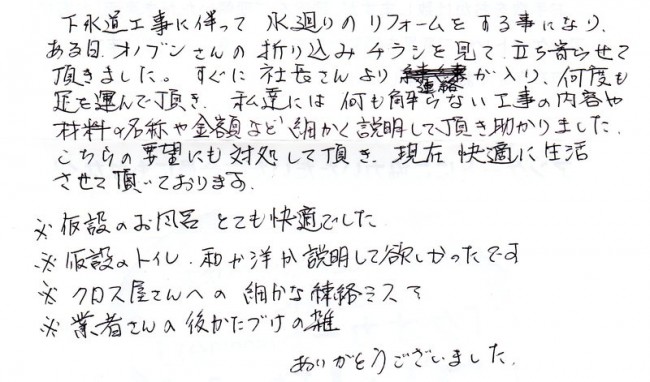 下水道工事に伴って 水廻りのリフォームをする事になり、
ある日 オノブンさんの折り込みチラシを見て、立ち寄らせて
頂きました。すぐに社長さんより連絡が入り、何度も
足を運んで頂き、私達には何も解らない工事の内容や
材料の名称や金額など細かく説明して頂き助かりました。
こちらの要望にも対処して頂き、現在 快適に生活
させて頂いております。
※仮設のお風呂 とても快適でした
※仮設のトイレ、和か洋か説明して欲しかったです
※クロス屋さんへの細かな練絡ミスで
※業者さんの後かたづけの雑
ありがとうございました。